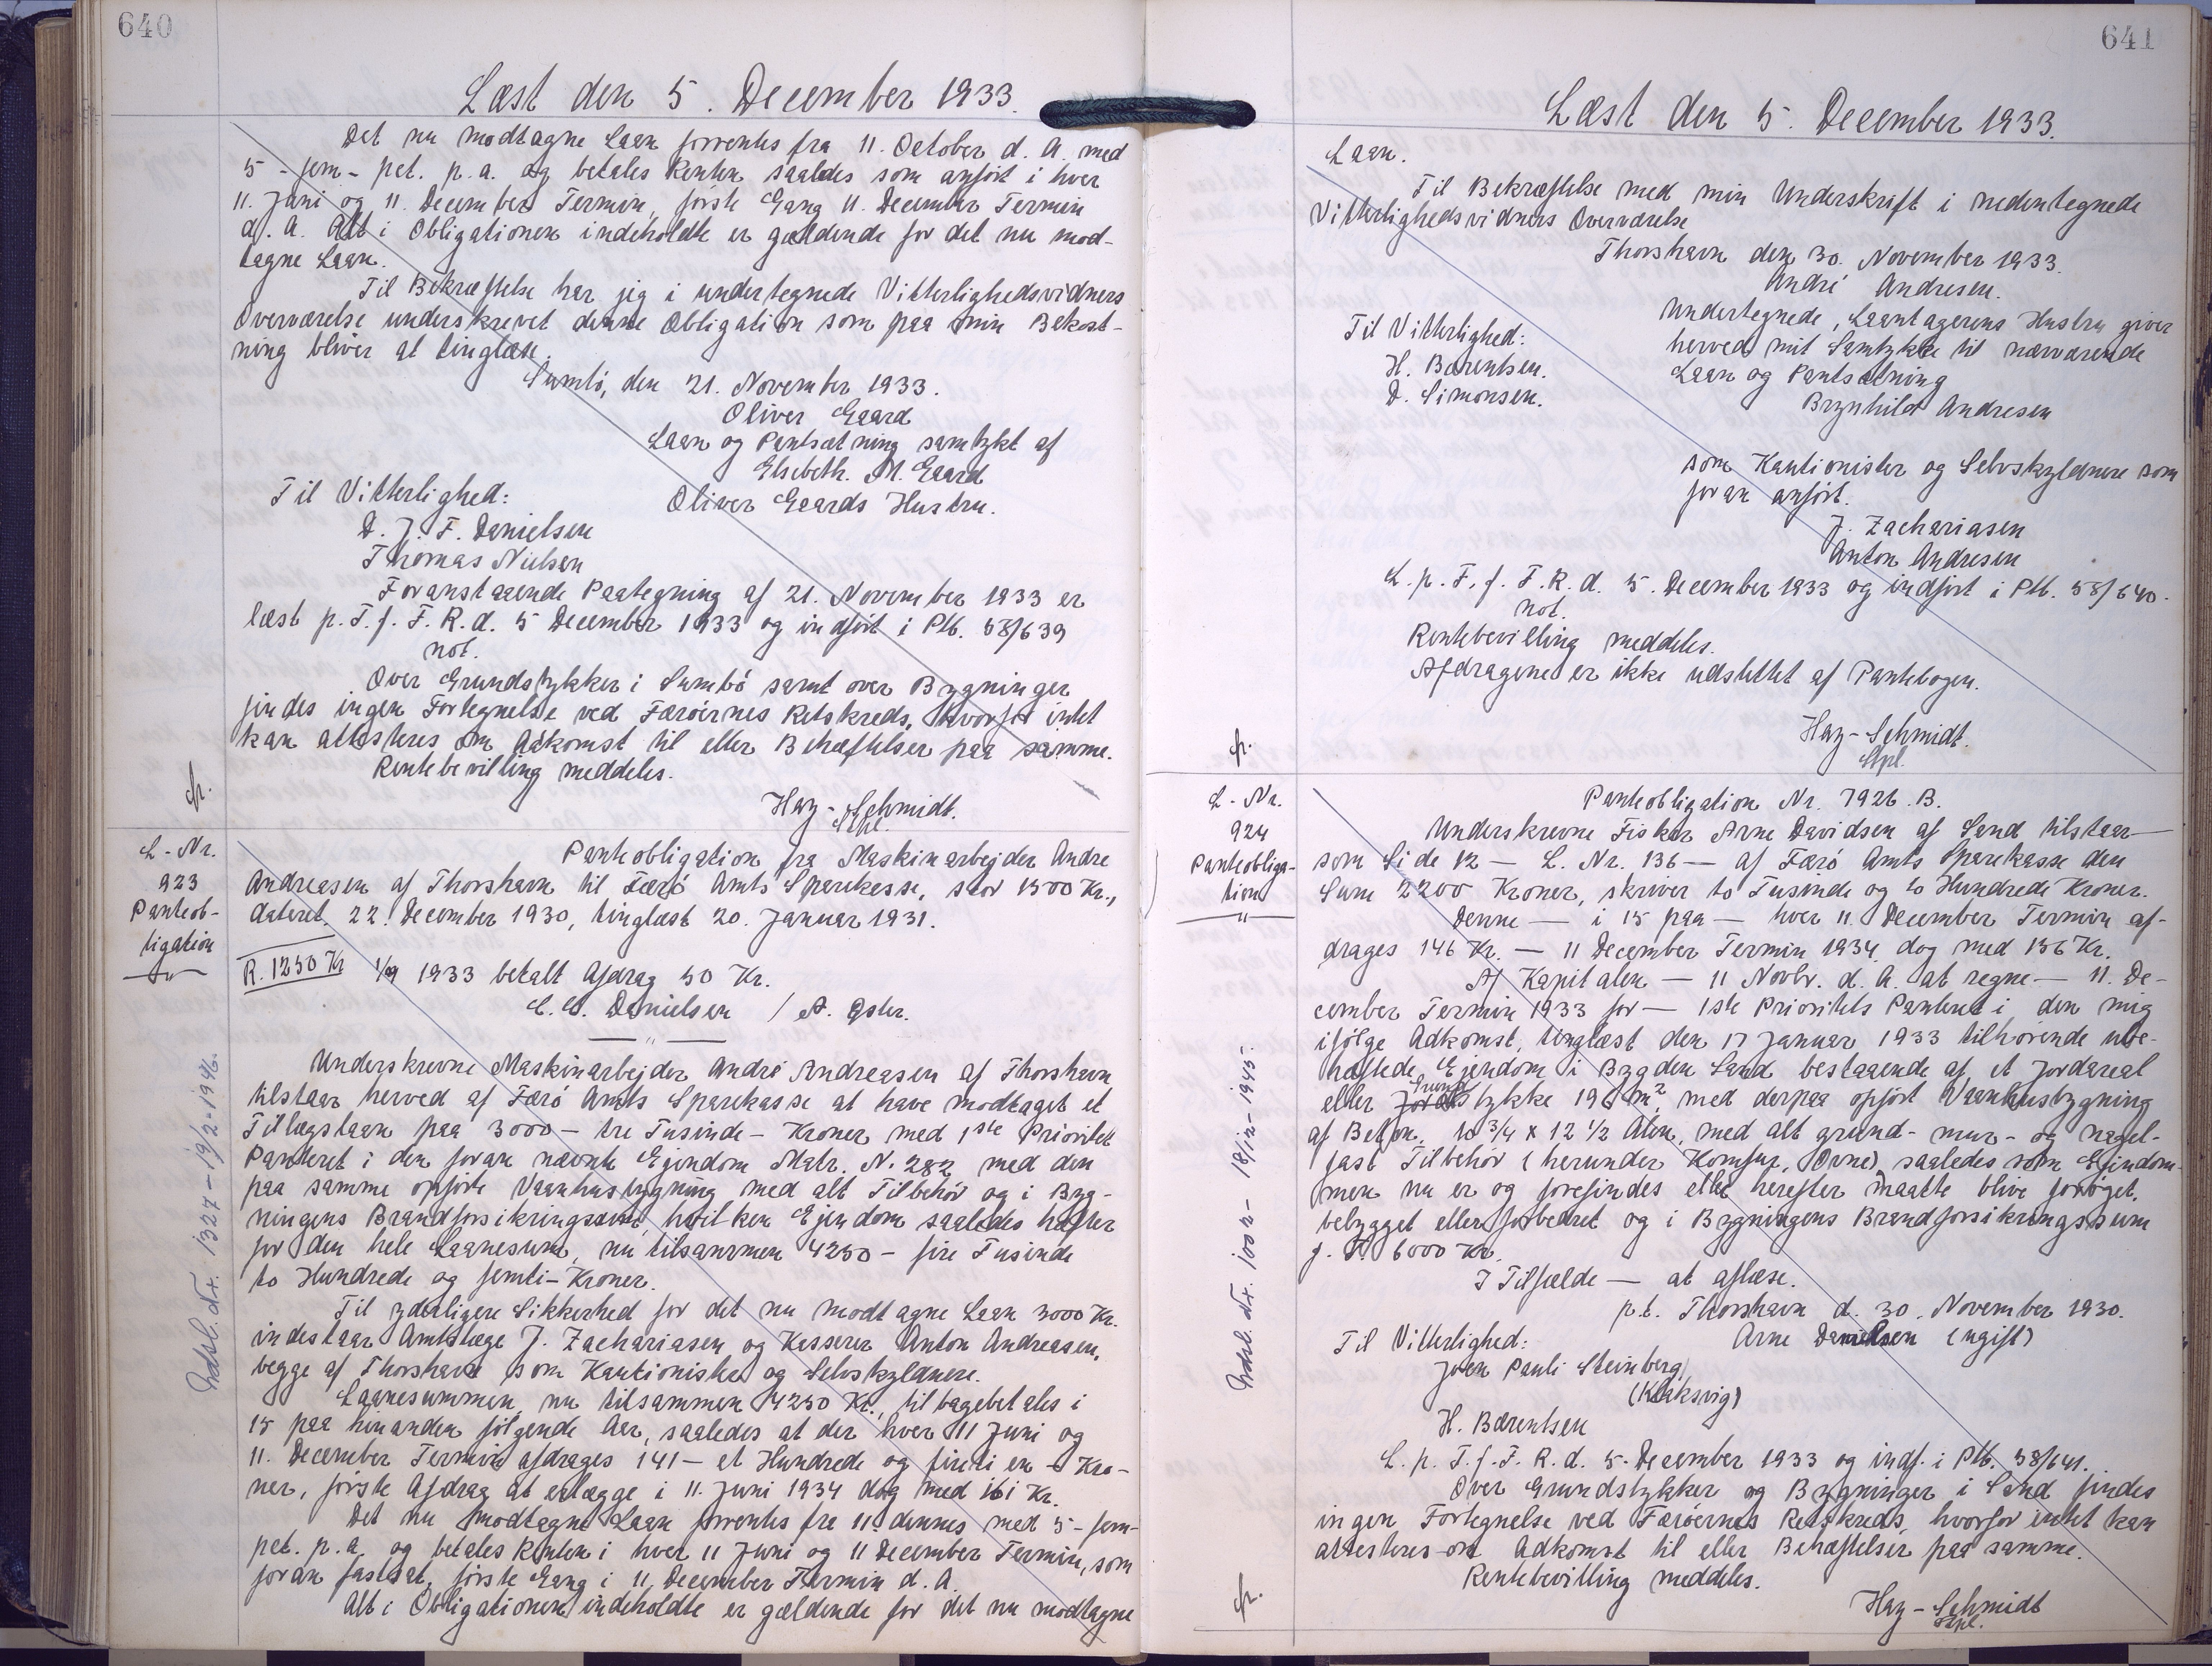 640
Læst den 5. December 1933.
Det nu modtagne Laan forrentes fra 11. October d. A. med
5 - fem - pct. p. a. og betales Renten saaledes som anført i hver
11. Juni og 11. December Termin, første Gang 11. December Termin
d. A. Alt i Obligationen indeholdte er gældende for det nu mod-
tagne Laan.
Til Bekræftelse har jeg i undertegnede Vitterlighedsvidners
Overværelse underskrevet denne Obligation som paa min Bekost-
ning bliver at tinglæse.
Sumbö, den 21. November 1933.
Oliver Gaard
Laan og Pantsætning samtykt af
Elsebeth. M. Gaard
Oliver Gaards Hustru.
Til Vitterlighed:
D. J. F. Danielsen
Thomas Nielsen
Foranstaaende Paategning af 21. November 1933 er
læst p. T. f. F. R. d. 5 December 1933 og indført i Ptb. 58/639
not.
Over Grundstykker i Sumbö samt over Bygninger
findes ingen Fortegnelse ved Færöernes Retskreds, hvorfor intet
kan attesteres om Adkomst til eller Behæftelser paa samme.
Rentebevilling meddeles.
Hay-Schmidt.
Stpl.
fr.
L-Nr.
923
Panteob-
ligation
"
Panteobligation fra Maskinarbejder Andre
Andreasen af Thorshavn til Færö Amts Sparekasse, stor 1500 Kr.,
dateret 22. December 1930, tinglæst 20. Januar 1931.
R. 1250 Kr
1/9 1933 betalt Afdrag 50 Kr.
C. C. Danielsen / A. Øster.
"
Underskrevne Maskinarbejder André Andreasen af Thorshavn
tilstaar herved af Færö Amts Sparekasse at have modtaget et
Tillægslaan paa 3000 - tre Tusinde - Kroner med 1ste Prioritet
Panteret i den foran nævnte Ejendom Matr. N. 282 med den
paa samme opførte Vaanhusbygning med alt Tilbehör og i Byg-
ningens Brandforsikringssum, hvilken Ejendom saaledes hæfter
for den hele Laanesum, nu tilsammen 4250 - fire Tusinde
to Hundrede og femti - Kroner.
Til yderligere Sikkerhed for det nu modtagne Laan 3000 Kr.
indestaar Amtslæge J. Zachariasen og Kasserer Anton Andreasen,
begge af Thorshavn som Kautionister og Selvskyldnere.
Laanesummen, nu tilsammen 4250 Kr., tilbagebetales i
15 paa hinanden følgende Aar, saaledes at der hver 11 Juni og
11. December Termin afdrages 141 - et Hundrede og firti en - Kro-
ner, første Afdrag at erlægge i 11. Juni 1934 dog med 161 Kr.
Det nu modtagne Laan forrentes fra 11. dennes med 5 - fem-
pct. p. a. og betales Renten i hver 11 Juni og 11 December Termin, som
foran fastsat, første Gang i 11. December Termin d. A.
Alt i Obligationen indeholdte er gældende for det nu modtagne
Udsl. Nr. 1327 - 19/2-1946.
641
Læst den 5. December 1933.
Laan.
Til Bekræftelse med min Underskrift i nedentegnede
Vitterlighedsvidners Overværelse
Thorshavn den 30. November 1933.
André Andresen.
Til Vitterlighed:
H. Bærentsen.
D. Simonsen.
Undertegnede, Laantagerens Hustru giver
herved mit Samtykke til nærværende
Laan og Pantsætning
Brynhild Andresen
som Kautionister og Selvskyldnere som
foran anført.
J. Zachariasen
Anton Andresen
L. p. T. f. F. R. d. 5. December 1933 og indført i Ptb. 58/640.
not.
Rentebevilling meddeles.
Afdragene er ikke udslettet af Pantebogen.
Hay-Schmidt.
Stpl.
fr.
L-Nr.
924
Panteobliga-
tion
"
Panteobligation Nr. 7926. B.
Underskrevne Fisker Arne Davidsen af Sand tilstaar —
som Side 12 — L. Nr. 136 — af Færö Amts Sparekasse den
Sum 2200 Kroner, skriver to Tusinde og to Hundrede Kroner.
Denne — i 15 paa — hver 11. December Termin af-
drages 146 Kr. — 11 December Termin 1934 dog med 156 Kr.
Af Kapitalen — 11 Novbr. d. A. at regne — 11. De-
cember Termin 1933 for — 1ste Prioritets Panteret i den mig
ifølge Adkomst, tinglæst den 17 Januar 1933 tilhørende ube-
hæftede Ejendom i Bygden Sand bestaaende af et Jordareal
eller Grundstykke 196 m², med derpaa opført Vaanhusbygning
af Beton, 10 3/4 x 12 1/2 Alen, med alt grund- mur- og nagel-
fast Tilbehör (herunder Komfur, Ovne) saaledes som Ejendom-
men nu er og forefindes eller herefter maatte blive forøget,
bebygget eller forbedret og i Bygningens Brandforsikringssum
f. T. 6000 Kr.
I Tilfælde — at aflæse.
p.t. Thorshavn d. 30. November 1930.
Arne Danielsen (ugift)
Til Vitterlighed:
Joen Pauli Steinberg
(Klaksvig)
H. Bærentsen
L. p. T. f. F. R. d. 5. December 1933 og indf. i Ptb. 58/641.
Over Grundstykker og Bygninger i Sand findes
ingen Fortegnelse ved Færöernes Retskreds, hvorfor intet kan
attesteres om Adkomst til eller Behæftelser paa samme.
Rentebevilling meddeles.
Hay-Schmidt
Stpl.
fr.
Udsl. Nr. 1002 - 18/12-1945.